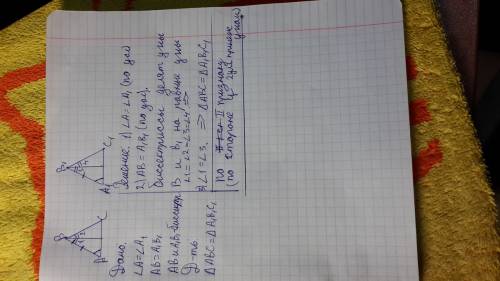 B
1 2
A
C
B₁
3 4
A₁
C₁
Дано:
∠A=∠A₁
AB=A₁B₁
AB и A₁B₁-биссектр.
Д-ть
△ABC=△A₁B₁C₁
Решение: 1) ∠A=∠A₁ (по усл)
2) AB=A₁B₁ (по усл).
биссектриссы делят углы
B и B₁ на равные углы
∠1=∠2=∠3=∠4 ⇒
∠1=∠3. ⇒ △ABC=△A₁B₁C₁
по II признаку
(по стороне и 2ум прилеж
углам)